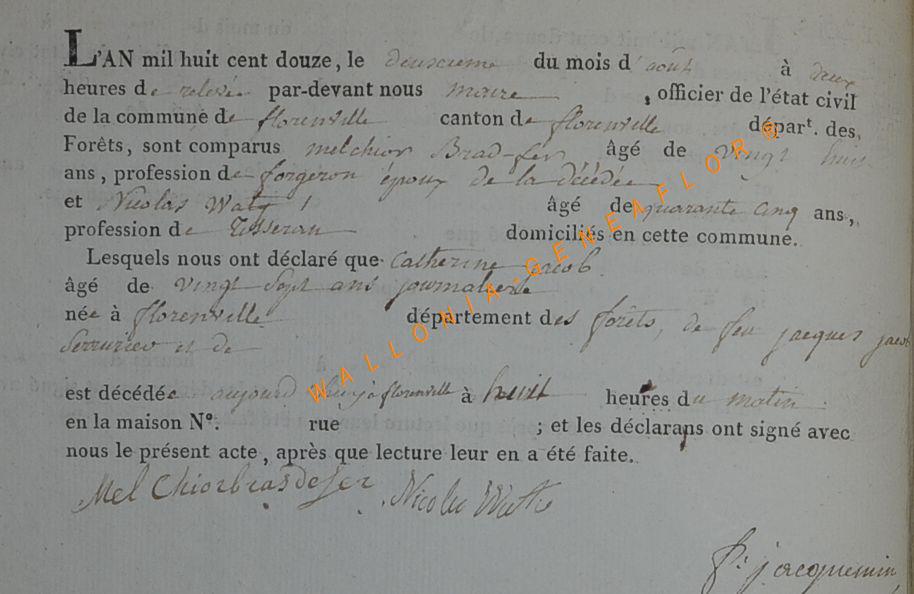 L'AN mil huit cent douze, le deuxieme du mois d'août à deux
heures de relevée par-devant nous maire, officier de l'état civil
de la commune de florenville canton de florenville départ. des
Forêts, sont comparus melchior Bradfer âgé de vingt huit
ans, profession de forgeron époux de la décédée
et Nicolas Watz âgé de quarante cinq ans,
profession de Tisseran domiciliés en cette commune.
Lesquels nous ont déclaré que Catherine jacob
âgé de vingt sept ans journaliere
née à florenville département des forêts, de feu jacques jacob
Serrurier et de
est décédée aujourd'huy à florenville à huit heures du matin
en la maison N°. rue ; et les déclarans ont signé avec
nous le présent acte, après que lecture leur en a été faite.
MelChior bras de fer Nicolas
jacquemin
WALLONIA-GENEAFLOR ©